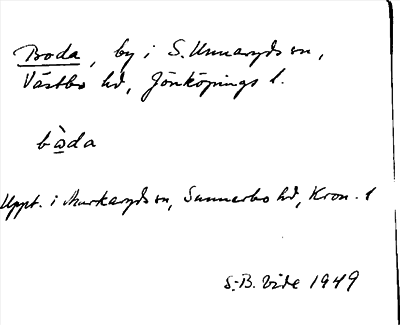 Boda, by i S. Unnaryds sn,
Västbo hd, Jönköpings l.
bàda
Uppt. i Markaryds sn, Sunnerbo hd, Kron. l
S.-B. Vide 1949